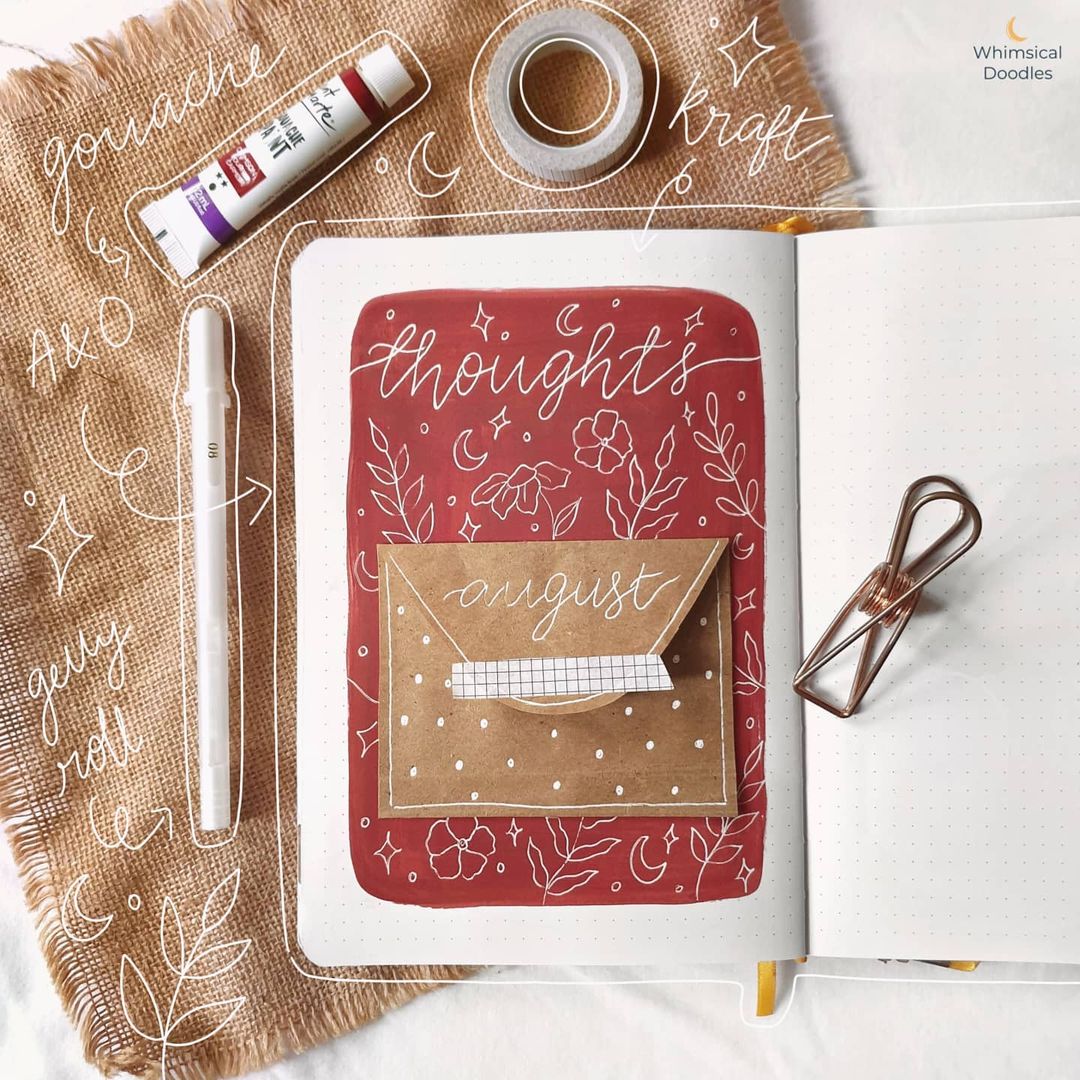 Whimsical
Doodles
gouache
kraft
A&O
gelly
roll
08
thoughts
august